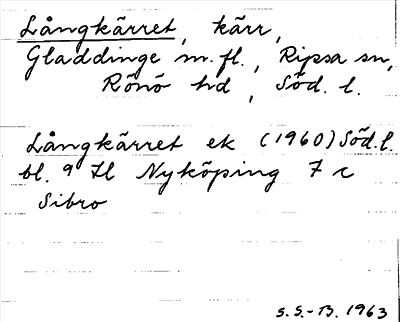 Långkärret, kärr,
Gladdinge m. fl., Ripsa sn,
Rönö hd, Söd. l.
Långkärret ek (1960) Söd. l.
bl. 9 Il Nyköping 7 c
Sibro
S.S.-B. 1963